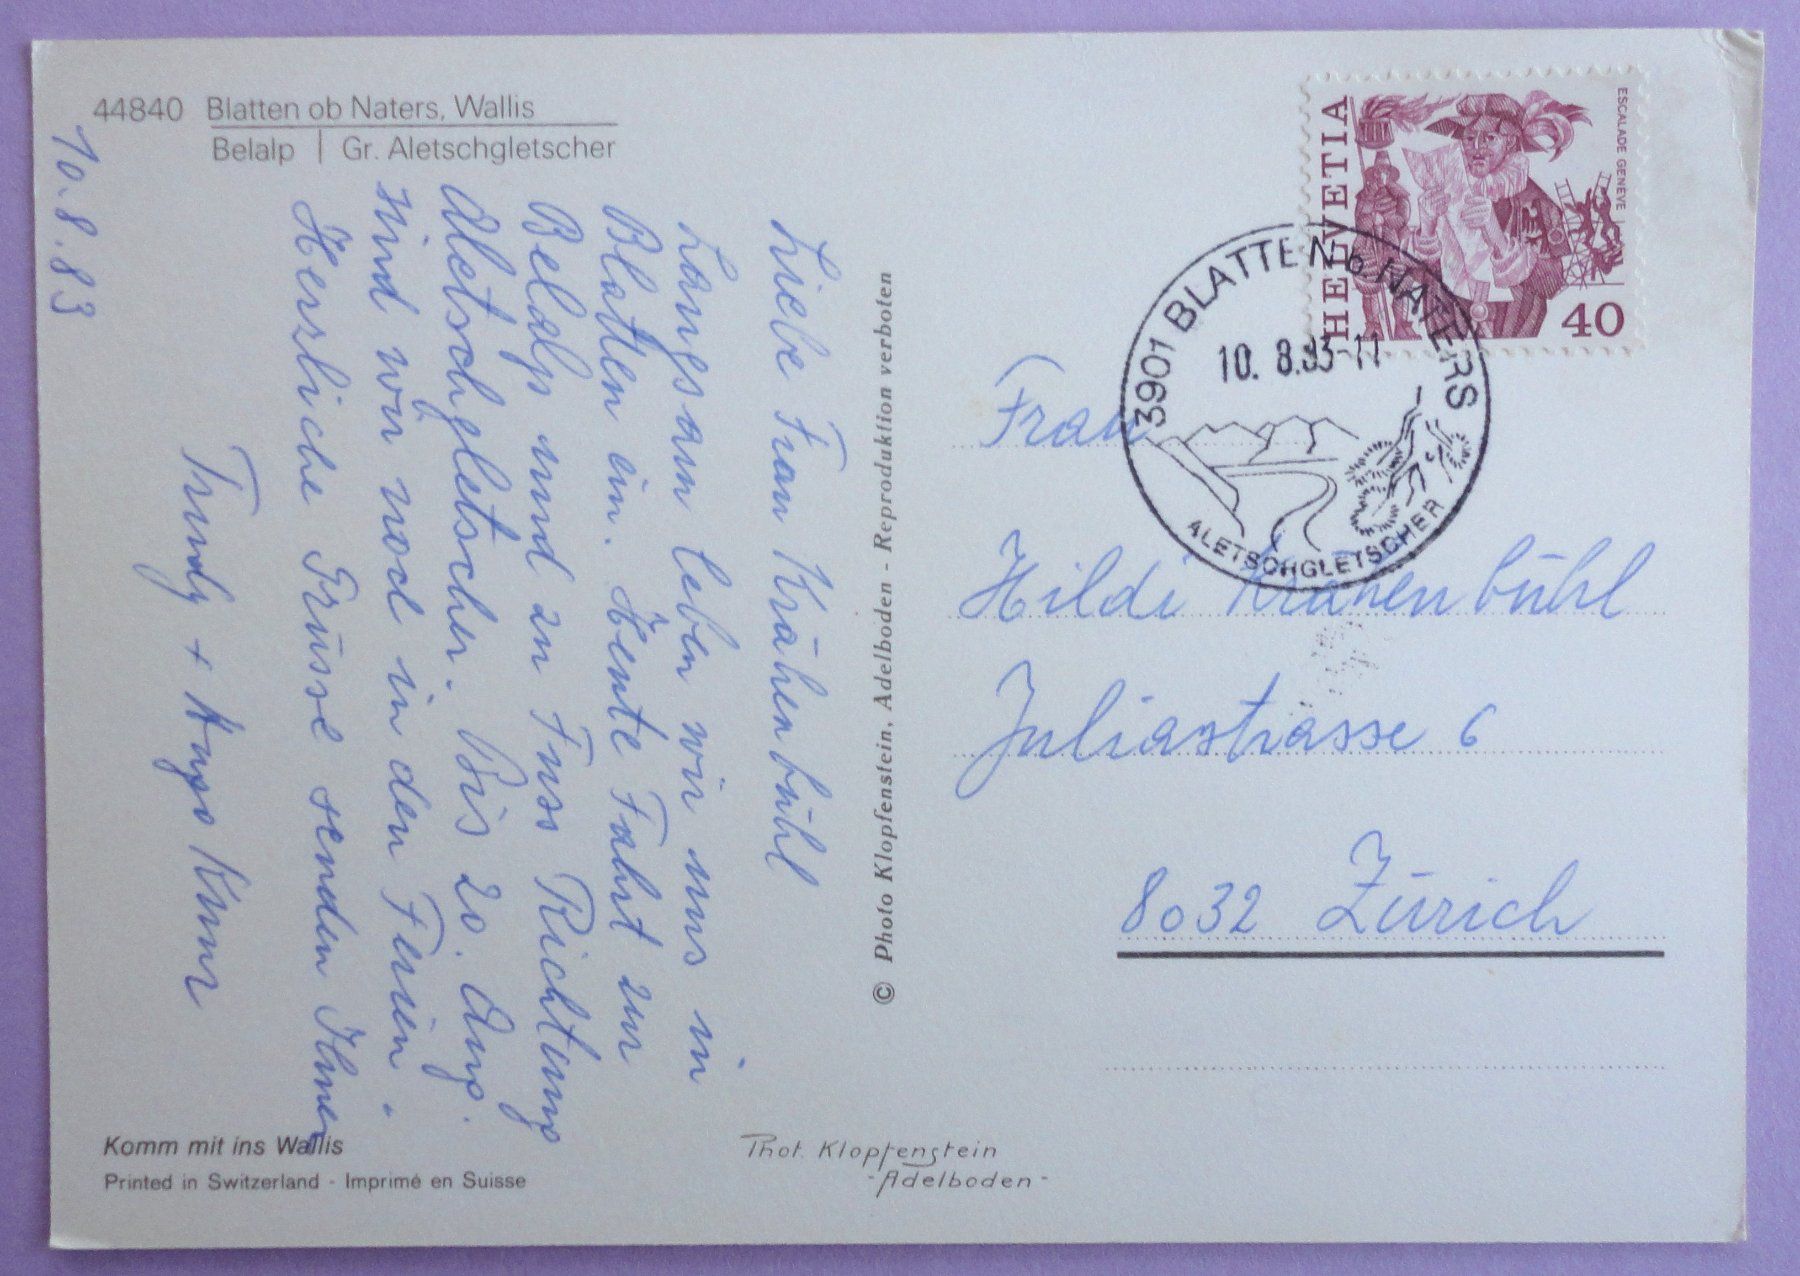 44840 Blatten ob Naters, Wallis
Belalp | Gr. Aletschgletscher
10.8.83
Liebe Frau Krähenbühl
Langsam leben wir uns in
Blatten ein. Heute Fahrt zur
Belalp und zu Fuss Richtung
Aletschgletscher. Bis 20. Aug.
sind wir noch in den Ferien.
Herzliche Grüsse senden Ihnen
Trudy + Hugo
© Photo Klopfenstein, Adelboden - Reproduktion verboten
HELVETIA
ESCALADE GENÈVE
40
3901 BLATTEN b. NATERS
10. 8.83-11
ALETSCHGLETSCHER
Frau
Hildi Krähenbühl
Juliastrasse 6
8032 Zürich
Komm mit ins Wallis
Printed in Switzerland - Imprimé en Suisse
Phot. Klopfenstein
-Adelboden-